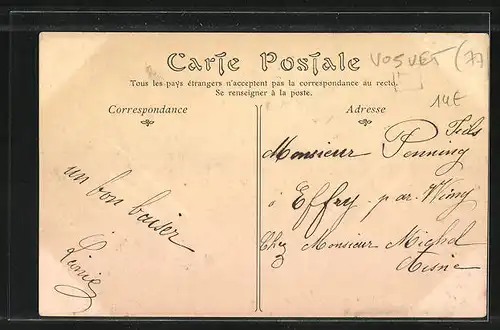 Carte Postale
VOSVET (77)
14€
Tous les pays étrangers n'acceptent pas la correspondance au recto.
Se renseigner à la poste.
Correspondance
un bon baiser
Adresse
Fils
Monsieur Penning
à Effry par Wimy
Chez Monsieur Mighel
Aisne